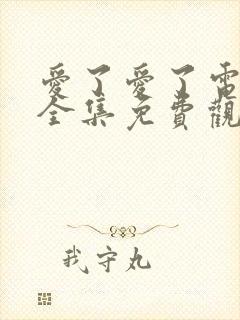 愛了愛了電
全集免費觀
我守丸